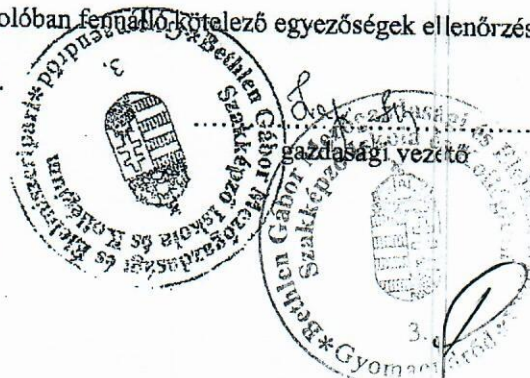 olóban fennálló kötelező egyezőségek ellenőrzés
gazdasági vezető
*Bethlen Gábor Mezőgazdasági és Élelmiszeripari*
Szakképző Iskola és Kollégium
Gyomaendrőd
3.
*Bethlen Gábor Mezőgazdasági és
Szakképző Iskola
3.
*Gyomaendrőd*